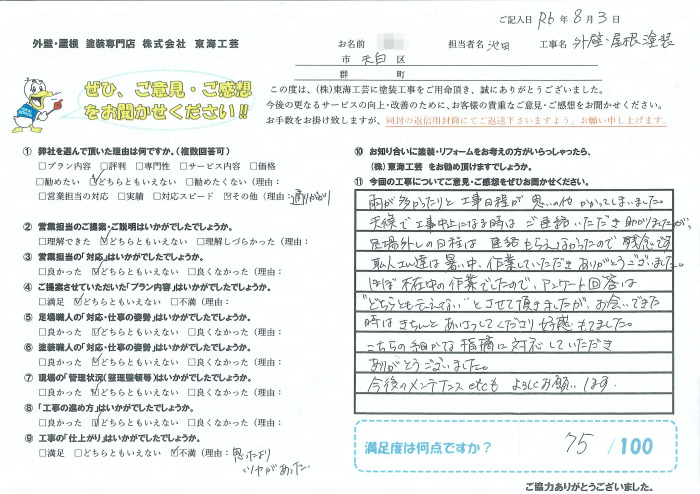 ご記入日 R6年 8月 3日
外壁・屋根 塗装専門店 株式会社 東海工芸
お名前
担当者名 池田
工事名 外壁・屋根塗装
市 天白 区
郡 町
ぜひ、ご意見・ご感想
をお聞かせください!!
この度は、(株)東海工芸に塗装工事をご用命頂き、誠にありがとうございました。
今後の更なるサービスの向上・改善のために、お客様の貴重なご意見・ご感想をお聞かせください。
お手数をお掛け致しますが、同封の返信用封筒にてご返送下さいますよう、お願い申し上げます。
① 弊社を選んで頂いた理由は何ですか。(複数回答可)
□プラン内容 □評判 □専門性 □サービス内容 □価格
□勧めたい ☑どちらともいえない □勧めたくない (理由:
□営業担当の対応 □実績 □対応スピード ☑その他 (理由: 通りがかり
② 営業担当のご提案・ご説明はいかがでしたでしょうか。
□理解できた ☑どちらともいえない □理解しづらかった (理由:
③ 営業担当の「対応」はいかがでしたでしょうか。
□良かった ☑どちらともいえない □良くなかった (理由:
④ ご提案させていただいた「プラン内容」はいかがでしたでしょうか。
□満足 ☑どちらともいえない □不満 (理由:
⑤ 足場職人の「対応・仕事の姿勢」はいかがでしたでしょうか。
□良かった ☑どちらともいえない □良くなかった (理由:
⑥ 塗装職人の「対応・仕事の姿勢」はいかがでしたでしょうか。
□良かった ☑どちらともいえない □良くなかった (理由:
⑦ 現場の「管理状況(整理整頓等)」はいかがでしたでしょうか。
□良かった ☑どちらともいえない □良くなかった (理由:
⑧ 「工事の進め方」はいかがでしたでしょうか。
□良かった ☑どちらともいえない □良くなかった (理由:
⑨ 工事の「仕上がり」はいかがでしたでしょうか。
□満足 □どちらともいえない ☑不満 (理由: 思ったより
ツヤがあった。
⑩ お知り合いに塗装・リフォームをお考えの方がいらっしゃったら、
(株)東海工芸 をお勧め頂けますでしょうか。
⑪ 今回の工事についてご意見・ご感想をお聞かせください。
雨が多かったりと工事日程が思いの他かかってしまいました。
天候で工事中止になる時はご連絡いただき助かりましたが、
足場外しの日程は連絡もらえなかったので残念です。
職人さん達は暑い中、作業していただきありがとうございました。
ほぼ不在中の作業でしたので、アンケート回答は
"どちらともいえない"とさせて頂きましたが、お会いできた
時はきちんとあいさつしてくださり好感もてました。
こちらの細かな指摘に対応していただき
ありがとうございました。
今後のメンテナンスetcもよろしくお願いします。
満足度は何点ですか? 75 /100
ご協力ありがとうございました。